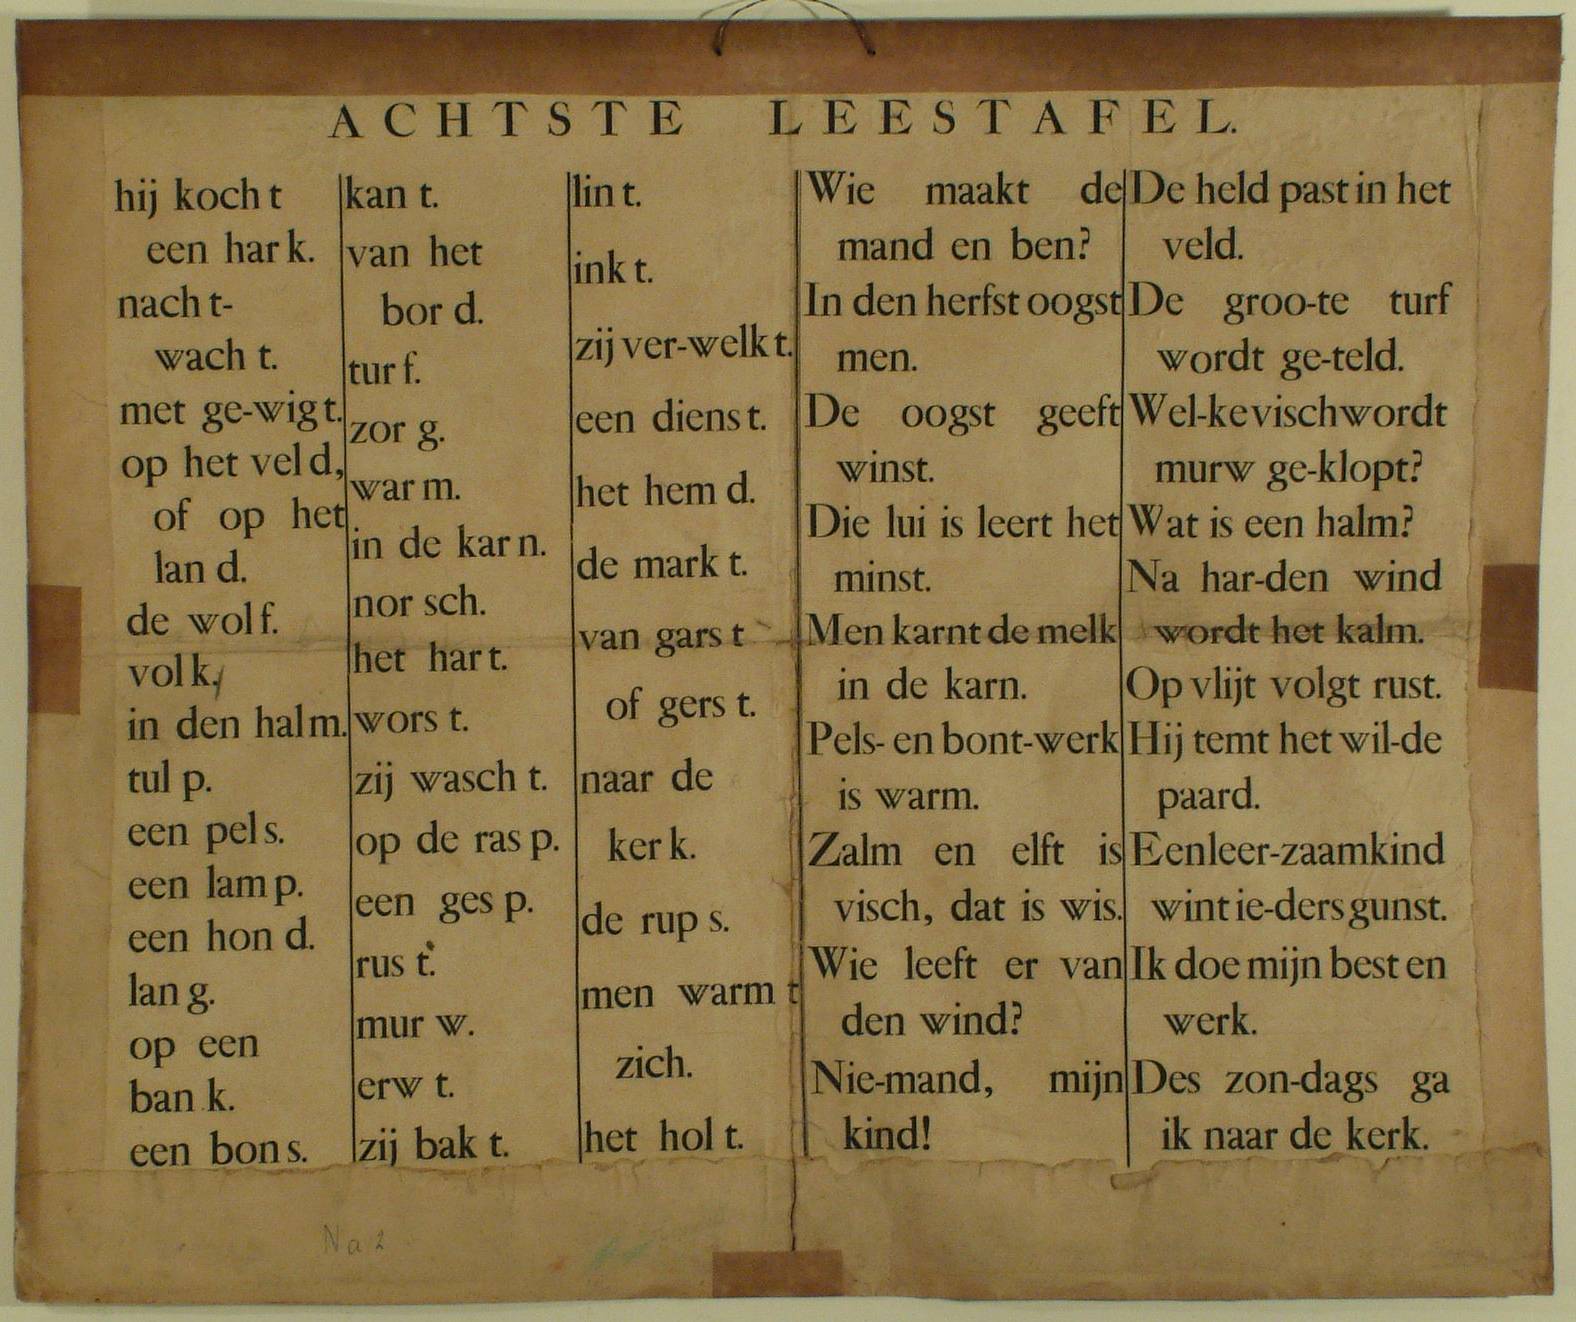 ACHTSTE LEESTAFEL.
hij koch t
een har k.
nach t-
wach t.
met ge-wig t.
op het vel d,
of op het
lan d.
de wol f.
vol k,
in den hal m.
tul p.
een pel s.
een lam p.
een hon d.
lan g.
op een
ban k.
een bon s.
kan t.
van het
bor d.
tur f.
zor g.
war m.
in de kar n.
nor sch.
het har t.
wors t.
zij wasch t.
op de ras p.
een ges p.
rus t.
mur w.
erw t.
zij bak t.
lin t.
ink t.
zij ver-welk t.
een diens t.
het hem d.
de mark t.
van gars t
of gers t.
naar de
ker k.
de rup s.
men warm t
zich.
het hol t.
Wie maakt de
mand en ben?
In den herfst oogst
men.
De oogst geeft
winst.
Die lui is leert het
minst.
Men karnt de melk
in de karn.
Pels- en bont-werk
is warm.
Zalm en elft is
visch, dat is wis.
Wie leeft er van
den wind?
Nie-mand, mijn
kind!
De held past in het
veld.
De groo-te turf
wordt ge-teld.
Wel-ke visch wordt
murw ge-klopt?
Wat is een halm?
Na har-den wind
wordt het kalm.
Op vlijt volgt rust.
Hij temt het wil-de
paard.
Een leer-zaam kind
wint ie-ders gunst.
Ik doe mijn best en
werk.
Des zon-dags ga
ik naar de kerk.
Na 2